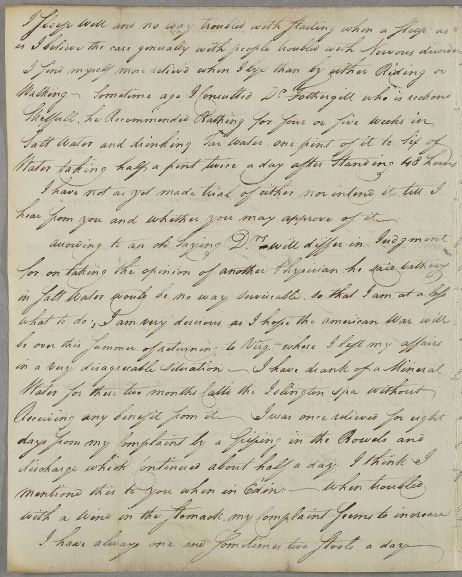 I Sleep well and no way troubled with starting when a Sleep as
is I believe the case generally with people troubled with Nervous disorders
I find myself more reliev'd when I lye than by either Riding or
Walking – Sometime ago I Consulted Dr. Fothergill who is reckond
Skilfull. he Recommended Bathing for four or five weeks in
Salt Water and drinking Tar Water one pint of it to Six of
Water taking half a pint twice a day after Standing 48 hours
I have not as yet made trial of either nor intend it till I
hear from you and whether you may approve of it
According to an old Saying Drs. will differ in Judgment
for on taking the opinion of another Physician he said bathing
in Salt Water would be no way Serviceable. So that I am at a loss
what to do; I am very desirous as I hope the American War will
be over this Summer of returning to Virg. where I left my affairs
in a very disagreeable Situation – I have drank of a Mineral
Water for these two months Calld the Islington Spa without
Receiving any benefit from it – I was once relieved for eight
days from my Complaint by a Gripping in the Bowels and
discharge which continued about half a day. I think I
mentioned this to you when in Edinr. – when troubled
with a wind in the Stomach my Complaint Seems to increase
I have always one and Sometimes two Stools a day